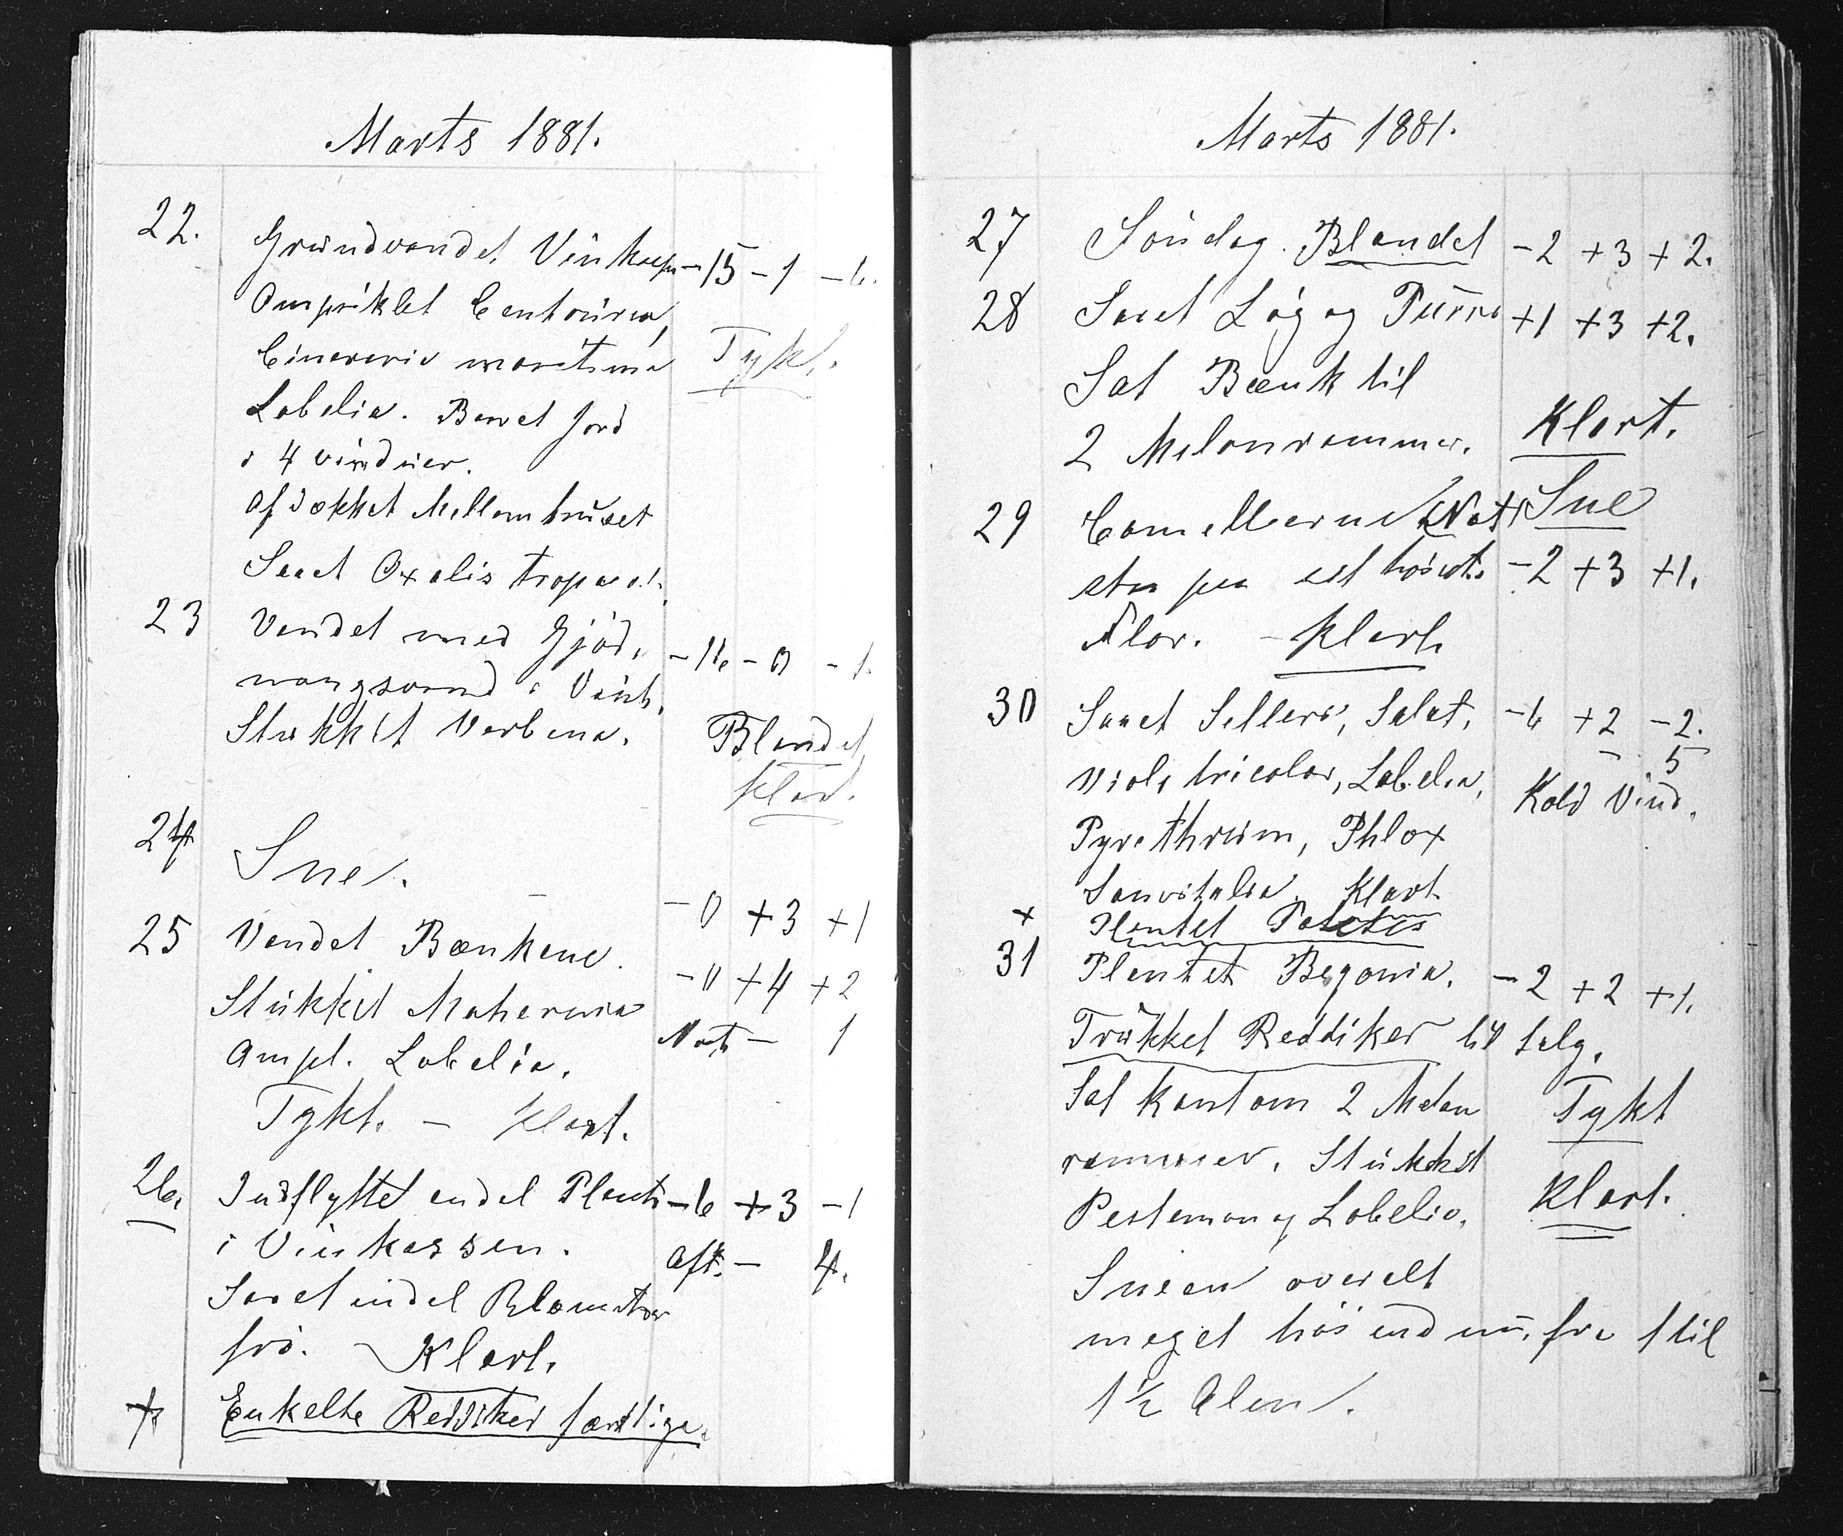 Marts 1881.
22. Grundvandet Vinkasse -15 -1 -6.
Ompriklet Centaurea,
Cineraria maritima Tykt.
Lobelia. Baaret Jord
i 4 vinduer.
Afdækket Mellemhuset
Saaet Oxalis tropaeol.
23 Vandet med Gjød,
ningsvand i Vinh. -16 -0 -1.
Stukket Verbena. Blandet
Klart.
24 Sne.
-0 +3 +1
25 Vandet Bænkene.
-0 +4 +2
Stukket Mahernia
Nat - 1
Ompl. Lobelia.
Tykt. - Klart.
26. Indflyttet endel Plant. -6 +3 -1
i Vinkassen. Aft. - 4.
Saaet endel Blomster
frö. - Klart.
+ Enkelte Reddiker færdige.
Marts 1881.
27 Søndag. Blandet -2 +3 +2.
28 Saaet Løg og Purre +1 +3 +2.
Sat Bænk til
2 Melonrammer. Klart.
29 Camellierne Nat Sne
staa paa det höieste -2 +3 +1.
Flor. - Klart.
30 Saaet Selleri, Salat, -6 +2 -2.
- 5
Viola tricolor, Lobelia, Kold Vind.
Pyrethrum, Phlox
Sanvitalia. Klart
+ Hentet Patates
31 Plantet Begonia. -2 +2 +1.
Trukket Reddiker til Salg.
Sat Kant om 2 Melon Tykt
rammer. Stukket
Pestemon og Lobelia. Klart.
Sneen overalt
meget höi endnu, fra 1 til
1½ Alen.